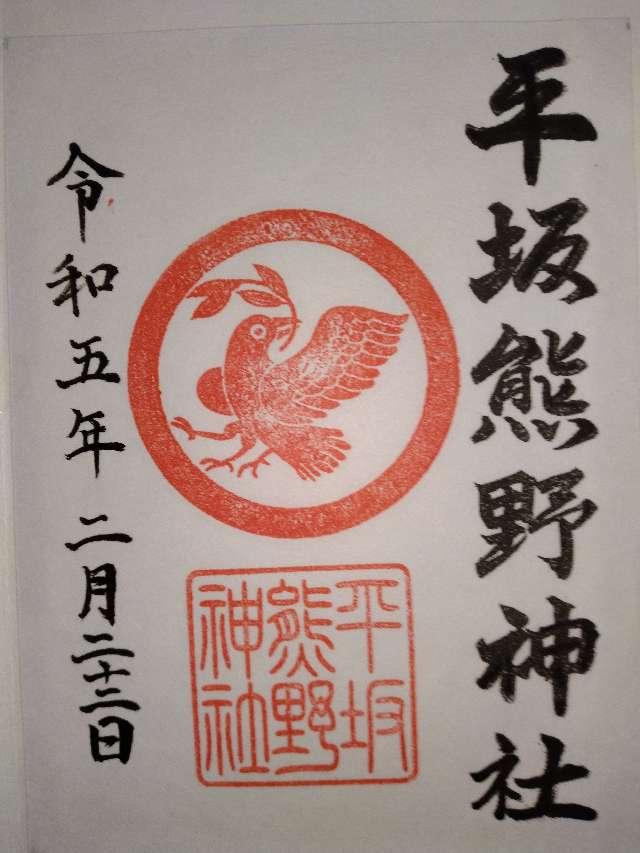 平坂熊野神社
平坂
熊野
神社
令和五年二月二十三日